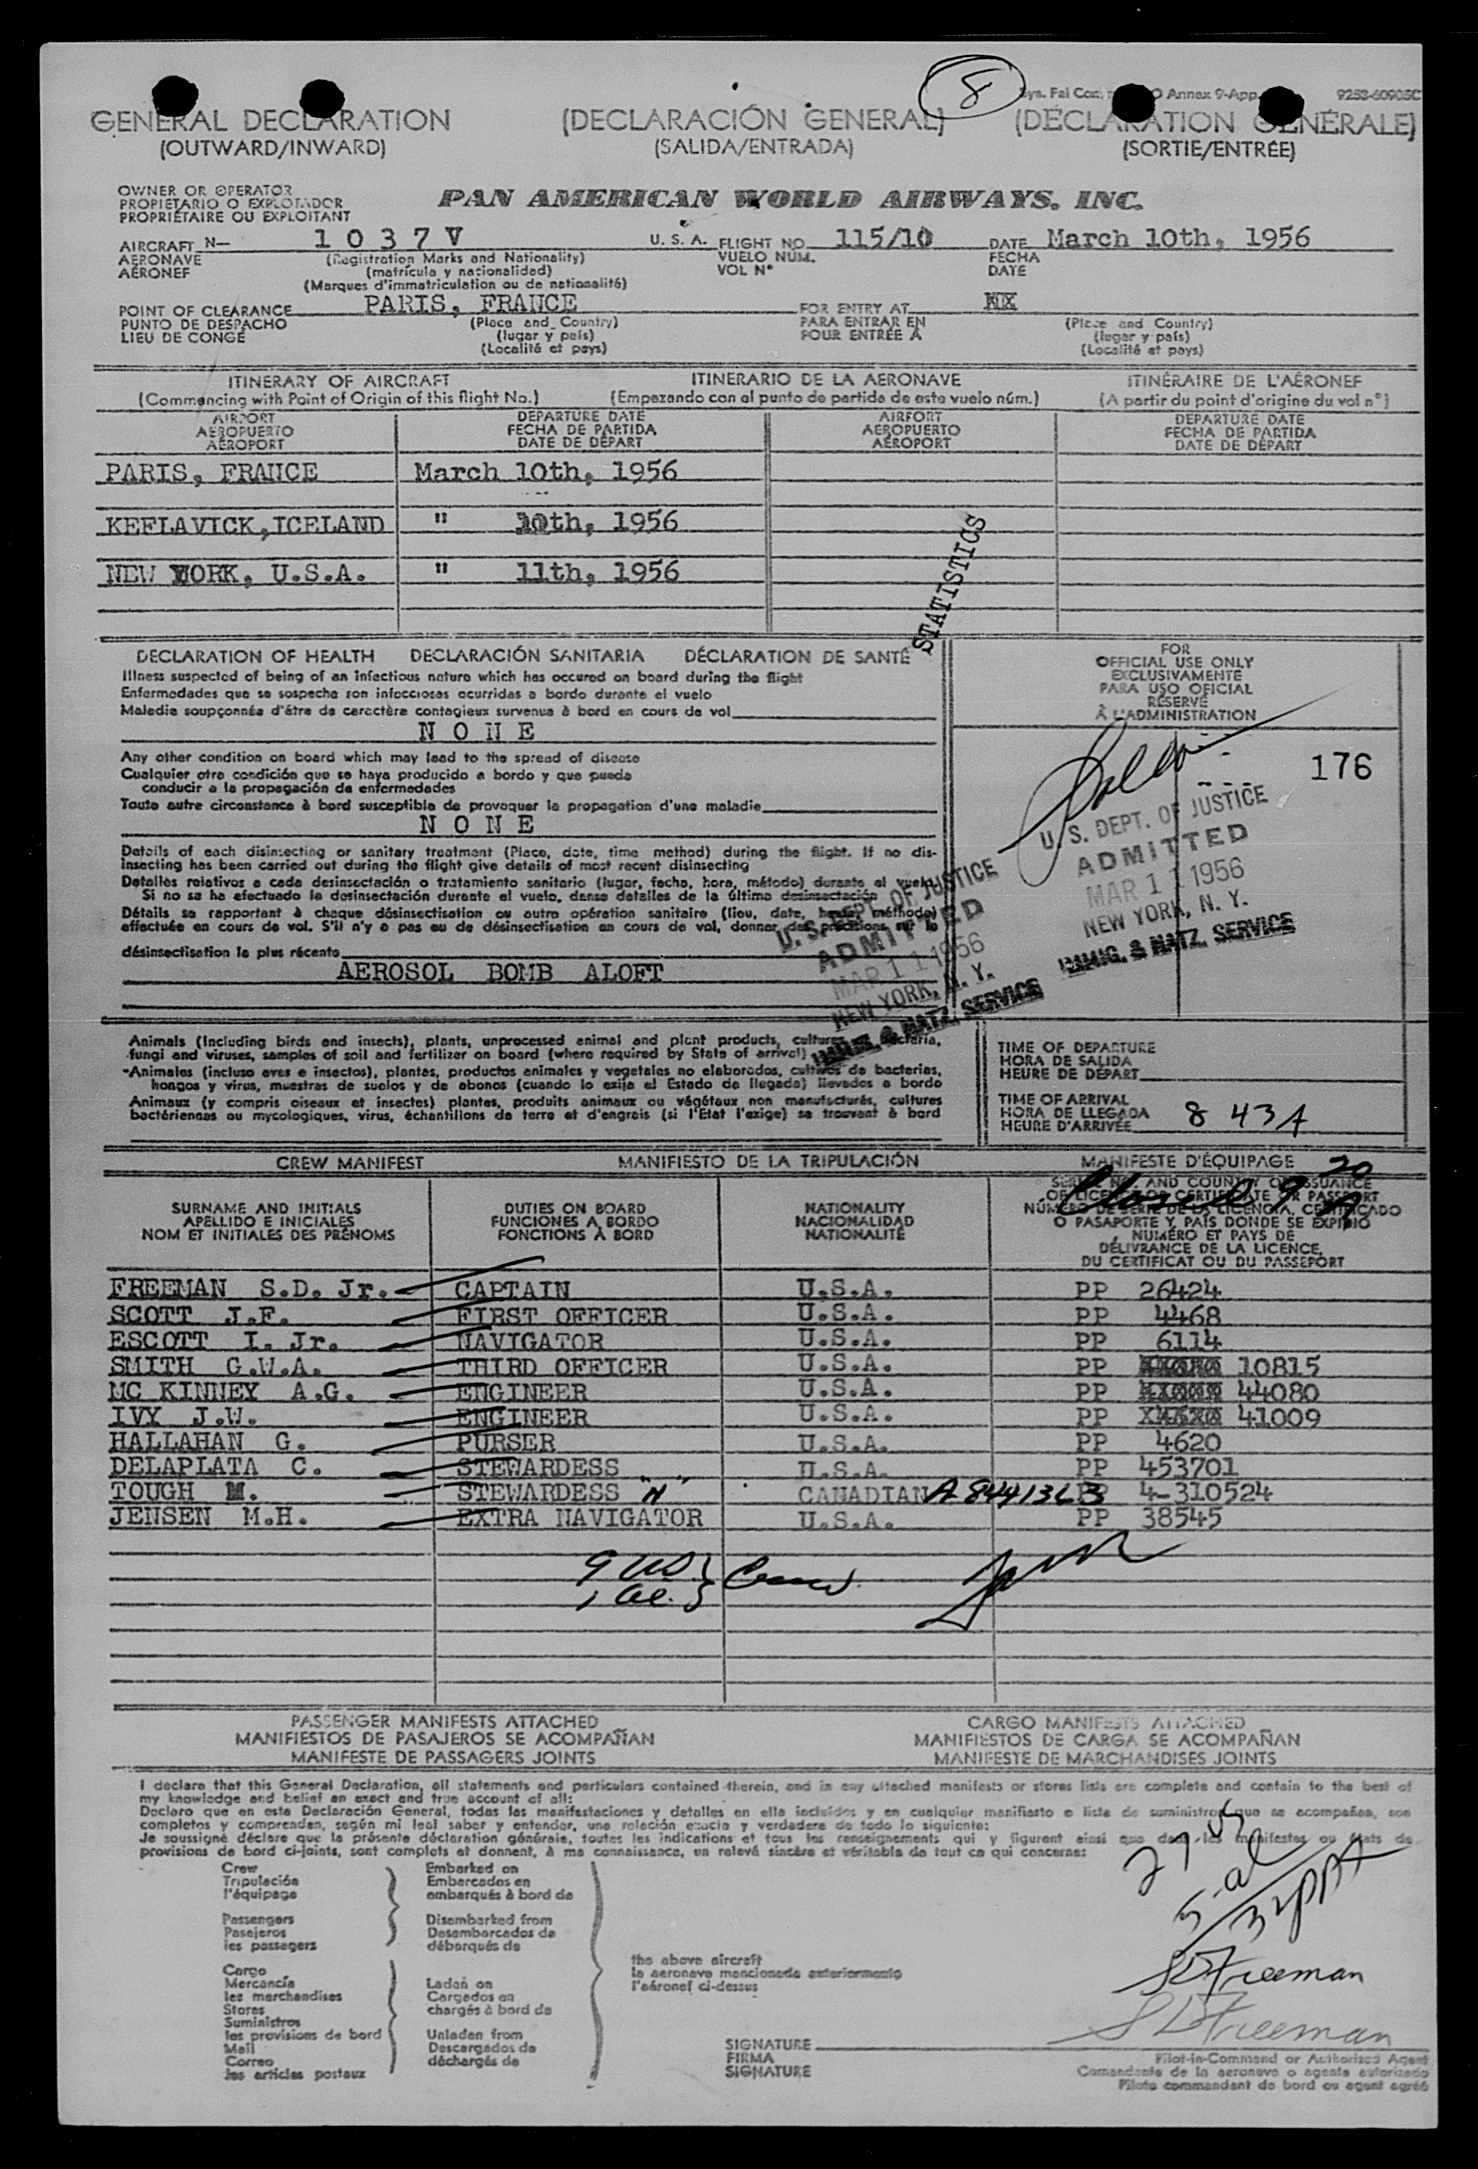 8
Annex 9-App. 9253-60905C
GENERAL DECLARATION (DECLARACIÓN GENERAL) (DÉCLARATION GÉNÉRALE)
(OUTWARD/INWARD) (SALIDA/ENTRADA) (SORTIE/ENTRÉE)
OWNER OR OPERATOR
PROPIETARIO O EXPLOTADOR
PROPRIÉTAIRE OU EXPLOITANT
PAN AMERICAN WORLD AIRWAYS, INC.
AIRCRAFT N- 1 0 3 7 V U. S. A. FLIGHT NO. 115/10 DATE March 10th, 1956
AERONAVE (Registration Marks and Nationality) VUELO NUM. FECHA
AÉRONEF (matrícula y nacionalidad) VOL N° DATE
(Marques d'immatriculation ou de nationalité)
POINT OF CLEARANCE PARIS, FRANCE FOR ENTRY AT
PUNTO DE DESPACHO (Place and Country) PARA ENTRAR EN (Place and Country)
LIEU DE CONGÉ (lugar y país) POUR ENTRÉE A (lugar y país)
(Localité et pays) (Localité et pays)
ITINERARY OF AIRCRAFT ITINERARIO DE LA AERONAVE ITINÉRAIRE DE L'AÉRONEF
(Commencing with Point of Origin of this flight No.) (Empezando con el punto de partida de este vuelo núm.) (A partir du point d'origine du vol n°)
AIRPORT DEPARTURE DATE AIRPORT DEPARTURE DATE
AEROPUERTO FECHA DE PARTIDA AEROPUERTO FECHA DE PARTIDA
AÉROPORT DATE DE DÉPART AÉROPORT DATE DE DÉPART
PARIS, FRANCE March 10th, 1956
KEFLAVICK,ICELAND " 10th, 1956
NEW YORK, U.S.A. " 11th, 1956
STATISTICS
DECLARATION OF HEALTH DECLARACIÓN SANITARIA DÉCLARATION DE SANTÉ
Illness suspected of being of an infectious nature which has occured on board during the flight
Enfermedades que se sospeche son infecciosas ocurridas a bordo durante el vuelo
Maladie soupçonnée d'être de caractère contagieux survenue à bord en cours de vol
N O N E
Any other condition on board which may lead to the spread of disease
Cualquier otra condición que se haya producido a bordo y que pueda
conducir a la propagación de enfermedades
Toute autre circonstance à bord susceptible de provoquer la propagation d'une maladie
N O N E
Details of each disinsecting or sanitary treatment (Place, date, time method) during the flight. If no dis-
insecting has been carried out during the flight give details of most recent disinsecting
Detalles relativos a cada desinsectación o tratamiento sanitario (lugar, fecha, hora, método) durante el vuelo.
Si no se ha efectuado la desinsectación durante el vuelo, dense detalles de la última desinsectación
Détails se rapportant à chaque désinsectisation ou autre opération sanitaire (lieu, date, heure, méthode)
effectuée en cours de vol. S'il n'y a pas eu de désinsectisation en cours de vol, donner des précisions sur la
désinsectisation la plus récente
AEROSOL BOMB ALOFT
FOR
OFFICIAL USE ONLY
EXCLUSIVAMENTE
PARA USO OFICIAL
RÉSERVÉ
À L'ADMINISTRATION
176
U. S. DEPT. OF JUSTICE
ADMITTED
MAR 11 1956
NEW YORK, N. Y.
IMMIG. & NATZ. SERVICE
U. S. DEPT. OF JUSTICE
ADMITTED
MAR 11 1956
NEW YORK, N. Y.
IMMIG. & NATZ. SERVICE
Animals (Including birds and insects), plants, unprocessed animal and plant products, cultures, bacteria,
fungi and viruses, samples of soil and fertilizer on board (where required by State of arrival)
Animales (incluso aves e insectos), plantas, productos animales y vegetales no elaborados, cultivos de bacterias,
hongos y virus, muestras de suelos y de abonos (cuando lo exija el Estado de llegada) llevados a bordo
Animaux (y compris oiseaux et insectes) plantes, produits animaux ou végétaux non manufacturés, cultures
bactériennes ou mycologiques, virus, échantillons de terre et d'engrais (si l'Etat l'exige) se trouvant à bord
TIME OF DEPARTURE
HORA DE SALIDA
HEURE DE DÉPART
TIME OF ARRIVAL
HORA DE LLEGADA
HEURE D'ARRIVÉE 8 43A
CREW MANIFEST MANIFIESTO DE LA TRIPULACIÓN MANIFESTE D'ÉQUIPAGE
SURNAME AND INITIALS
APELLIDO E INICIALES
NOM ET INITIALES DES PRÉNOMS
DUTIES ON BOARD
FUNCIONES A BORDO
FONCTIONS À BORD
NATIONALITY
NACIONALIDAD
NATIONALITÉ
SERIAL NO. AND COUNTRY OF ISSUANCE
OF LICENCE OR CERTIFICATE OR PASSPORT
NÚMERO DE SERIE DE LA LICENCIA, CERTIFICADO
O PASAPORTE Y PAÍS DONDE SE EXPIDIÓ
NUMÉRO ET PAYS DE
DÉLIVRANCE DE LA LICENCE,
DU CERTIFICAT OU DU PASSEPORT
FREEMAN S.D. Jr. CAPTAIN U.S.A. PP 26424
SCOTT J.F. FIRST OFFICER U.S.A. PP 4468
ESCOTT I. Jr. NAVIGATOR U.S.A. PP 6114
SMITH G.W.A. THIRD OFFICER U.S.A. PP 10815
MC KINNEY A.G. ENGINEER U.S.A. PP 44080
IVY J.W. ENGINEER U.S.A. PP 41009
HALLAHAN G. PURSER U.S.A. PP 4620
DELAPLATA C. STEWARDESS U.S.A. PP 453701
TOUGH M. STEWARDESS "N" CANADIAN PP 4-310524
JENSEN M.H. EXTRA NAVIGATOR U.S.A. PP 38545
PASSENGER MANIFESTS ATTACHED CARGO MANIFESTS ATTACHED
MANIFIESTOS DE PASAJEROS SE ACOMPAÑAN MANIFIESTOS DE CARGA SE ACOMPAÑAN
MANIFESTE DE PASSAGERS JOINTS MANIFESTE DE MARCHANDISES JOINTS
I declare that this General Declaration, all statements and particulars contained therein, and in any attached manifests or stores lists are complete and contain to the best of
my knowledge and belief an exact and true account of all:
Declaro que en esta Declaración General, todas las manifestaciones y detalles en ella incluídos y en cualquier manifiesto o lista de suministros que se acompañan, son
completos y comprenden, según mi leal saber y entender, una relación exacta y verdadera de todo lo siguiente:
Je soussigné déclare que la présente déclaration générale, toutes les indications et tous les renseignements qui y figurent ainsi que dans les manifestes ou états de
provisions de bord ci-joints, sont complets et donnent, à ma connaissance, un relevé sincère et véritable de tout ce qui concerne:
Crew
Tripulación
l'équipage
Passengers
Pasajeros
les passagers
Cargo
Mercancía
les marchandises
Stores
Suministros
les provisions de bord
Mail
Correo
les articles postaux
Embarked on
Embarcados en
embarqués à bord de
Disembarked from
Desembarcados de
débarqués de
Laden on
Cargados en
chargés à bord de
Unladen from
Descargados de
déchargés de
the above aircraft
la aeronave mencionada anteriormente
l'aéronef ci-dessus
SDFreeman
SDFreeman
SIGNATURE
FIRMA
SIGNATURE
Pilot-in-Command or Authorized Agent
Comandante de la aeronave o agente autorizado
Pilote commandant de bord ou agent agréé